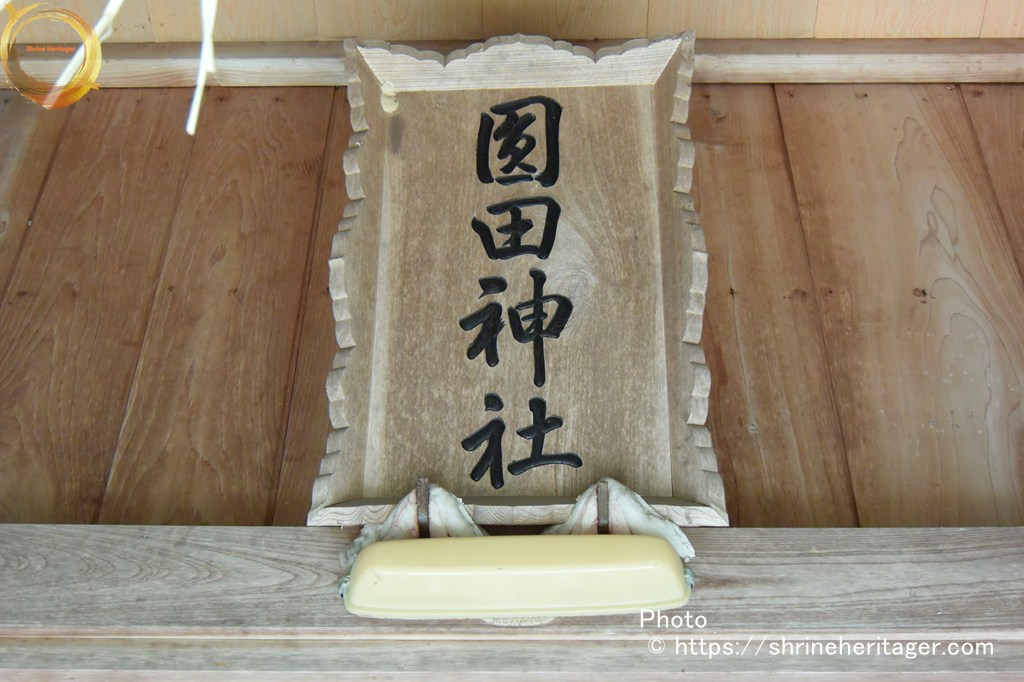 Shrine Heritager
圓田神社
Photo
© https://shrineheritager.com